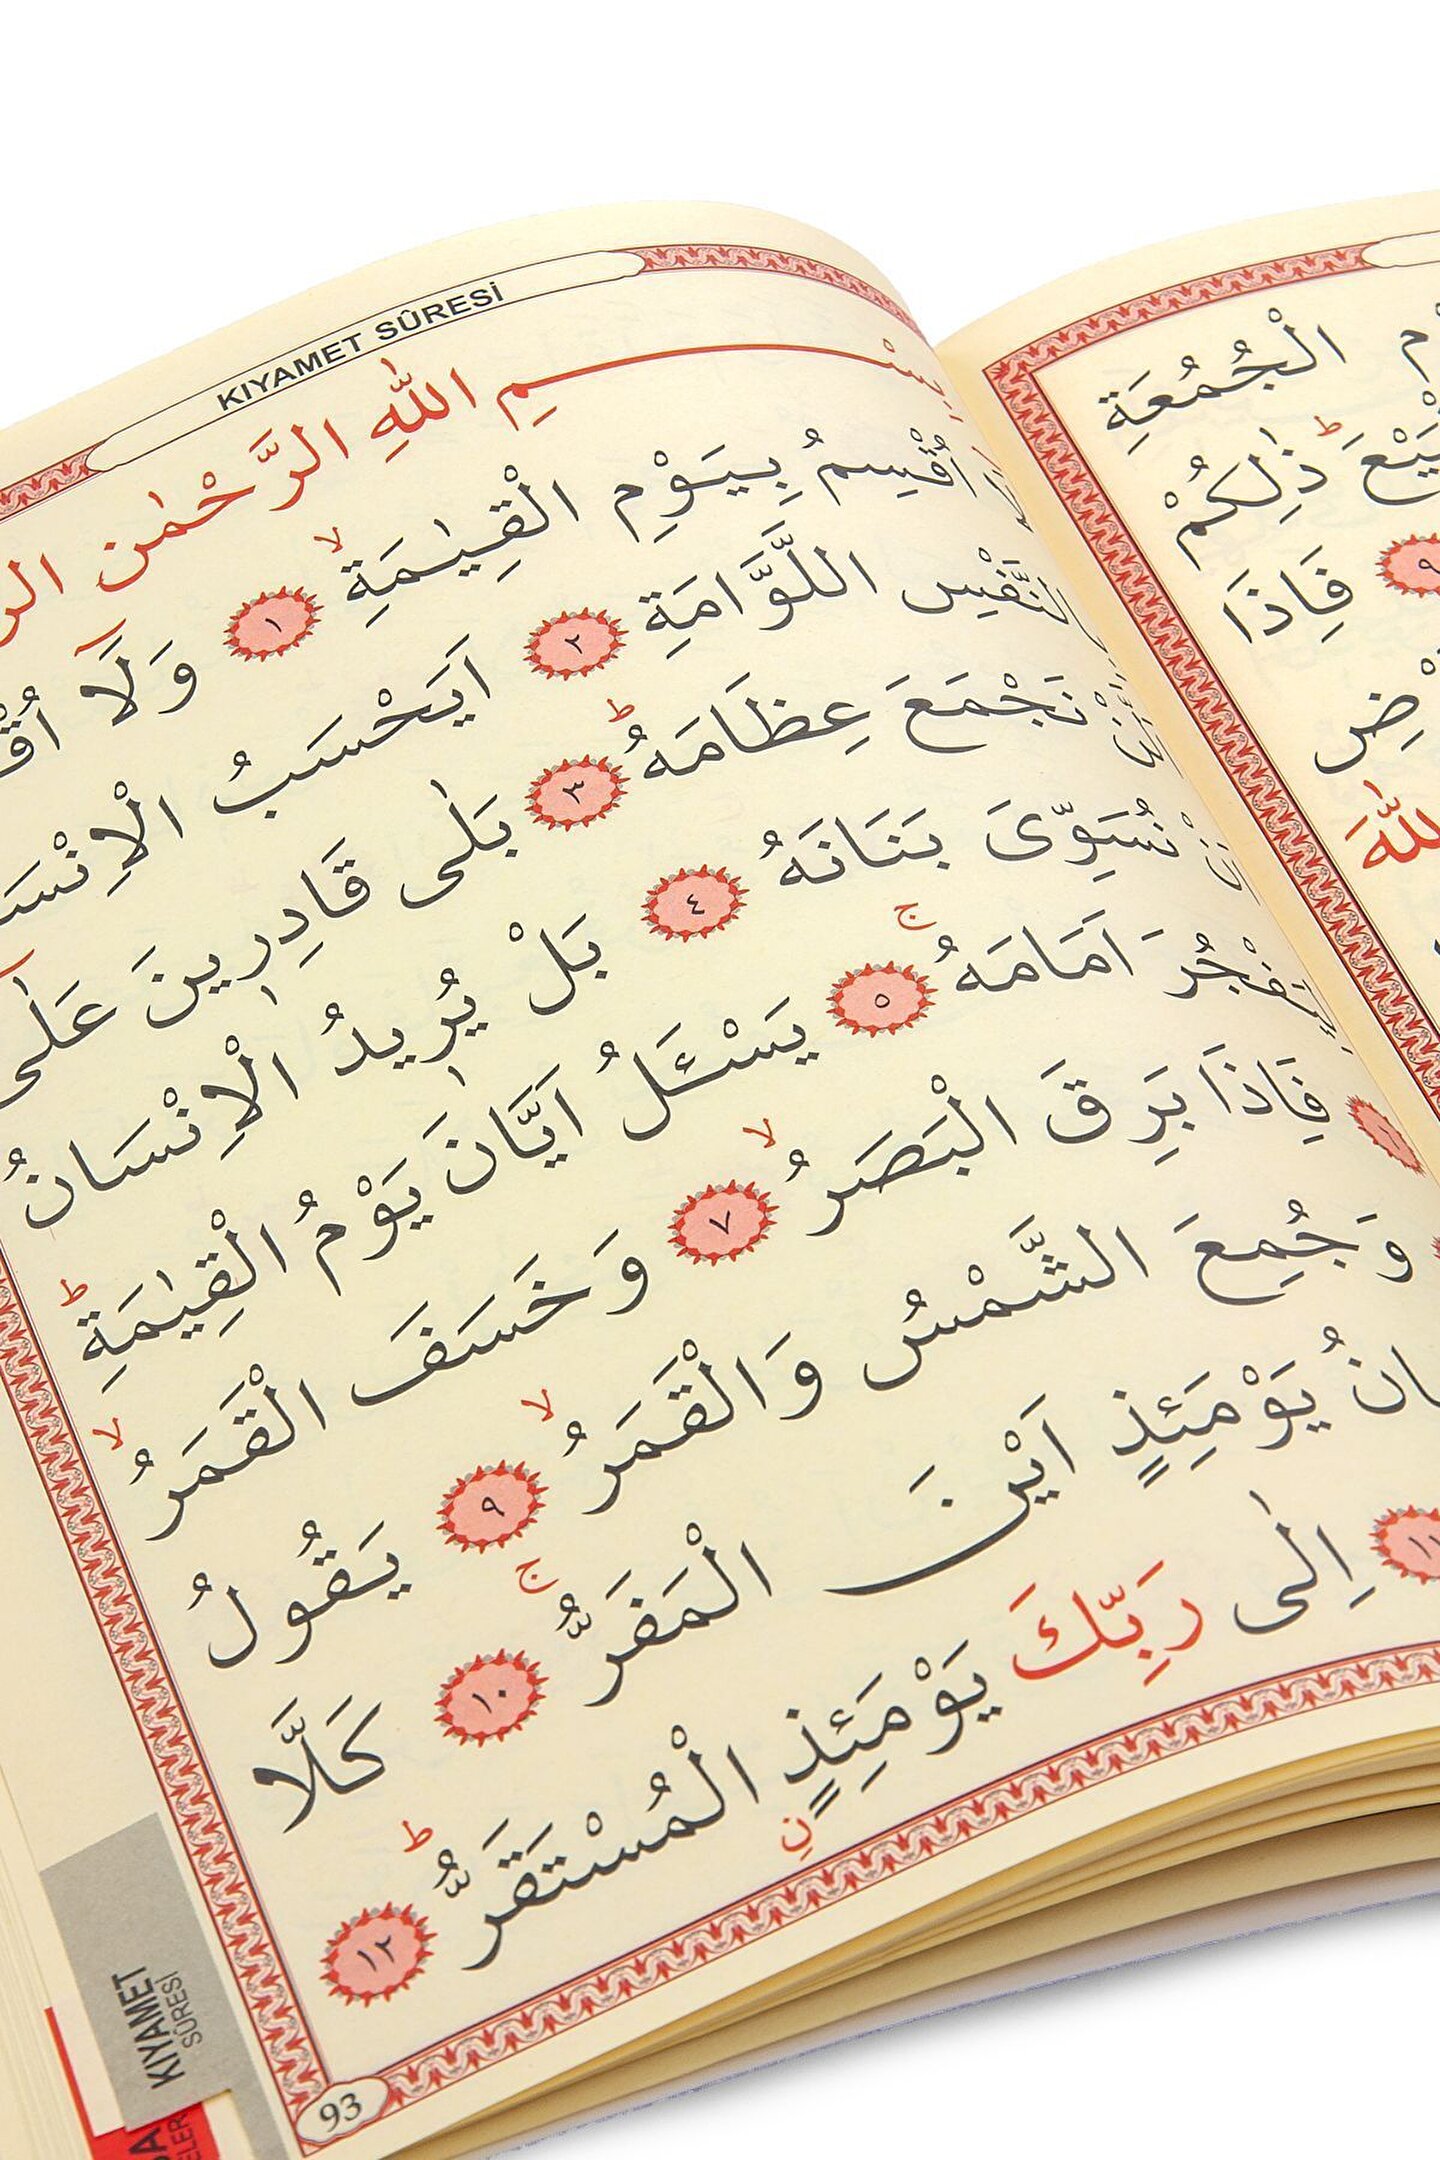 KIYAMET SÛRESİ
بِسْمِ اللّٰهِ الرَّحْمٰنِ
اُقْسِمُ بِيَوْمِ الْقِيٰمَةِۙ ﴿١﴾ وَلَٓا
النَّفْسِ اللَّوَّامَةِ ﴿٢﴾ اَيَحْسَبُ
نَجْمَعَ عِظَامَهُۜ ﴿٣﴾ بَلٰى قَادِرٖينَ عَلٰٓى
نُسَوِّىَ بَنَانَهُ ﴿٤﴾ بَلْ يُرٖيدُ الْاِنْسَانُ
لِيَفْجُرَ اَمَامَهُۚ ﴿٥﴾ يَسْـَٔلُ اَيَّانَ يَوْمُ الْقِيٰمَةِۜ
فَاِذَا بَرِقَ الْبَصَرُۙ ﴿٧﴾ وَخَسَفَ الْقَمَرُۙ
وَجُمِعَ الشَّمْسُ وَالْقَمَرُۙ ﴿٩﴾ يَقُولُ
يَوْمَئِذٍ اَيْنَ الْمَفَرُّۚ ﴿١٠﴾ كَلَّا
﴿١١﴾ اِلٰى رَبِّكَ يَوْمَئِذٍ الْمُسْتَقَرُّۜ ﴿١٢﴾
ن
93
KIYAMET
SÛRESİ
الْجُمُعَةِ
ذٰلِكُمْ
﴿٩﴾ فَاِذَا